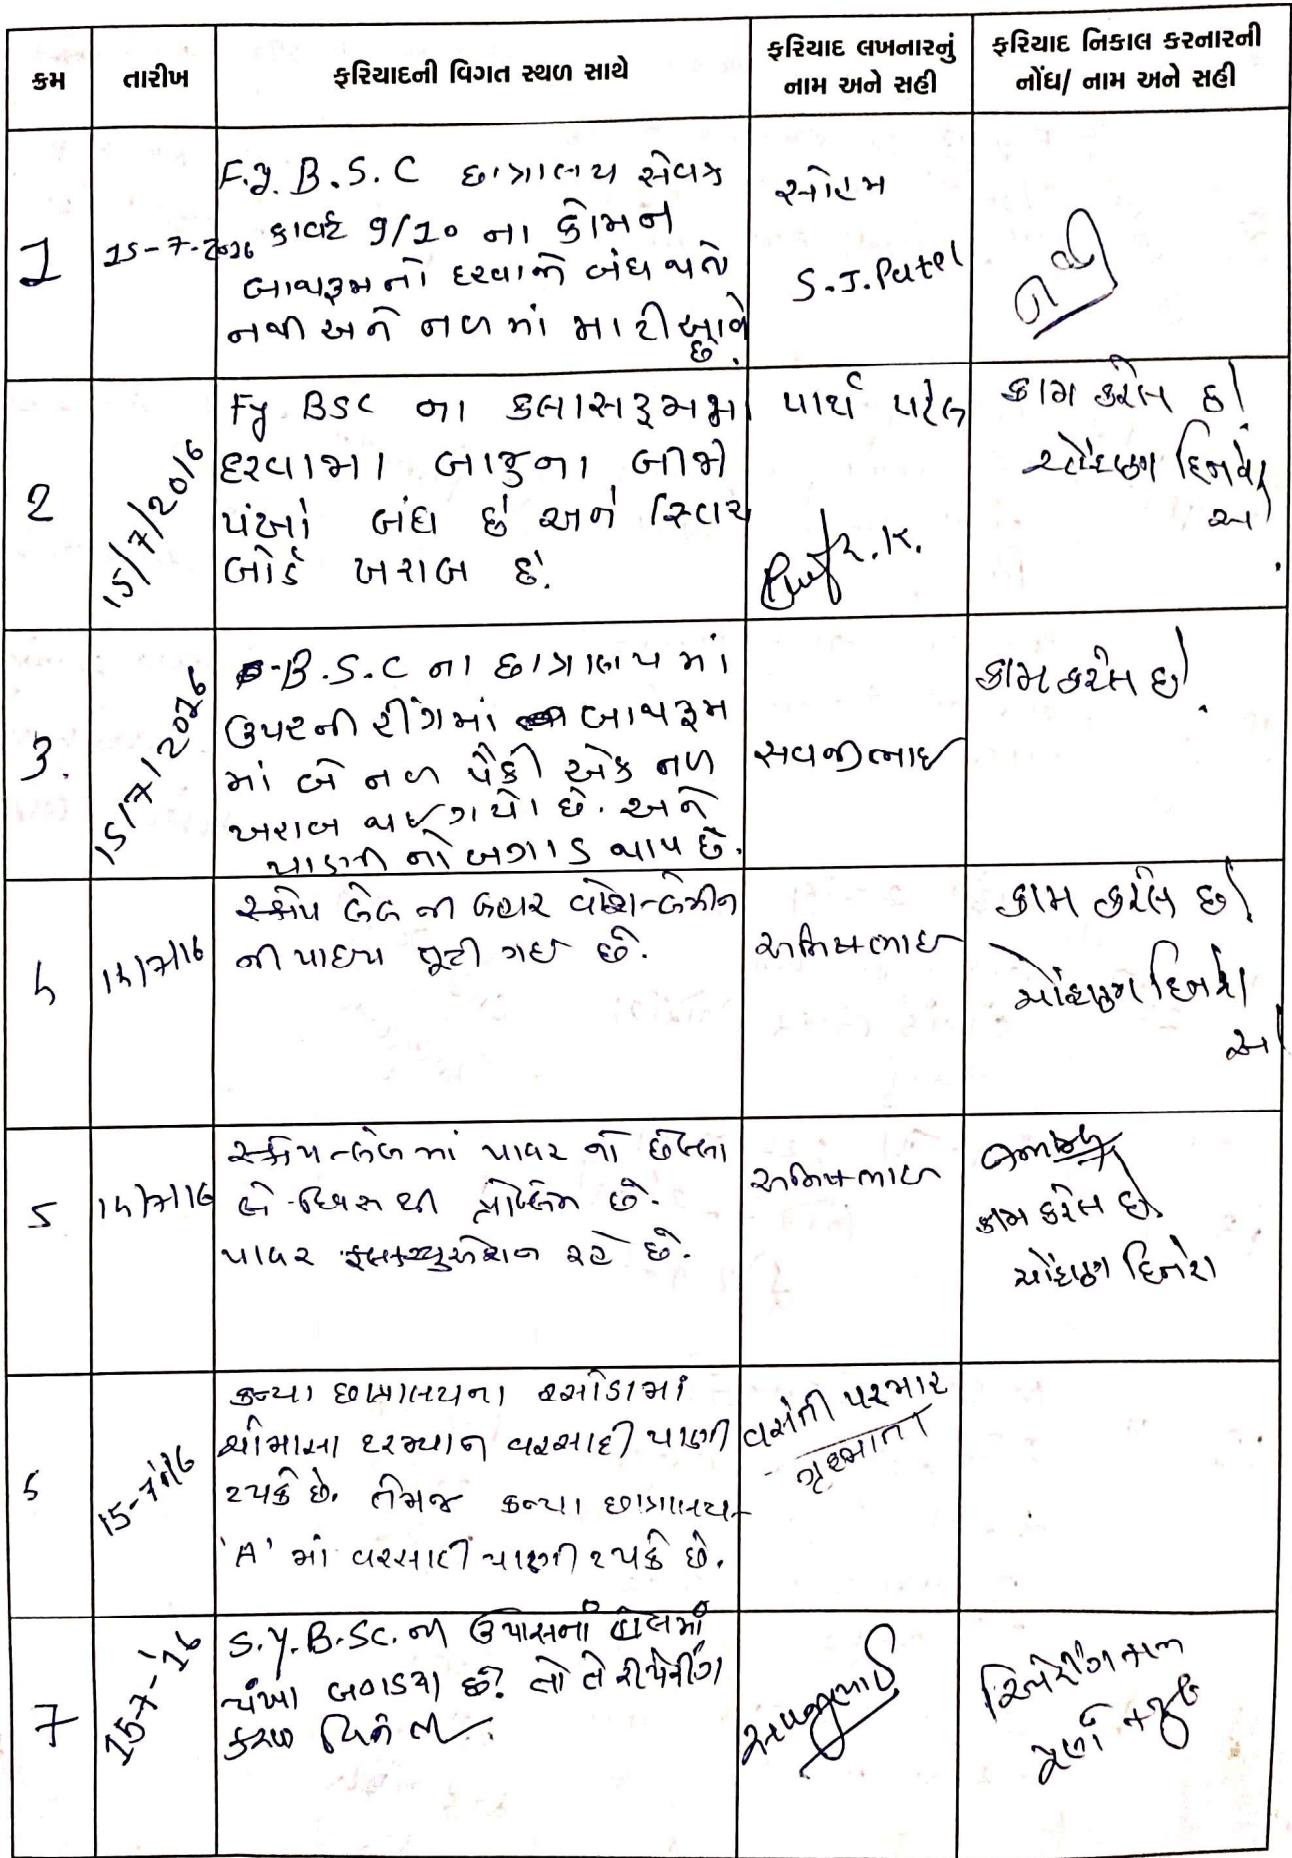 ક્રમ
તારીખ
ફરિયાદની વિગત સ્થળ સાથે
ફરિયાદ લખનારનું
નામ અને સહી
ફરિયાદ નિકાલ કરનારની
નોંધ/ નામ અને સહી
1
15-7-2016
F.y. B.S.C છાત્રાલય સેવક
9/10 ના કોમન
બાથરૂમનો દરવાજો બંધ થતો
નથી અને નળમાં માટી આવે
છે.
ઓમ
S.J.Patel
2
15/7/2016
Fy BSC ના કલાસરૂમમાં
દરવાજા બાજુના બીજો
પંખો બંધ છે અને સ્વિચ
બોર્ડ ખરાબ છે.
પાર્થ પટેલ
R.K.
કામ કરેલ છે
દિનેશ
3.
15/7/2016
B.S.C ના છાત્રાલયમાં
ઉપરની રીંગમાં બાથરૂમ
માં બે નળ પૈકી એક નળ
ખરાબ થઈ ગયો છે. અને
પાણી નો બગાડ થાય છે.
સવજીભાઈ
કામ કરેલ છે
સ્ક્રેપ લેબ ની બહાર વોશ-બેઝીન
ની પાઇપ તૂટી ગઇ છે.
કામ કરેલ છે
દિનેશ
5
સ્ક્રેપ લેબ માં પાવર નો છેલ્લા
બે દિવસ થી પ્રોબ્લેમ છે.
પાવર ફ્લક્ચ્યુએશન રહે છે.
કામ કરેલ છે
દિનેશ
કન્યા છાત્રાલયના રસોડામાં
ચોમાસા દરમ્યાન વરસાદી પાણી
ટપકે છે. તેમજ કન્યા છાત્રાલય-
'A' માં વરસાદી પાણી ટપકે છે.
વસંતી પરમાર
ગૃહમાતા
7
15-7-'16
S.Y.B.Sc. ની ઉપાસના હોલમાં
પંખા બગડયા છે. તો તે રીપેરીંગ
કરવા વિનંતી.
સવજીભાઈ
રિપેરીંગ